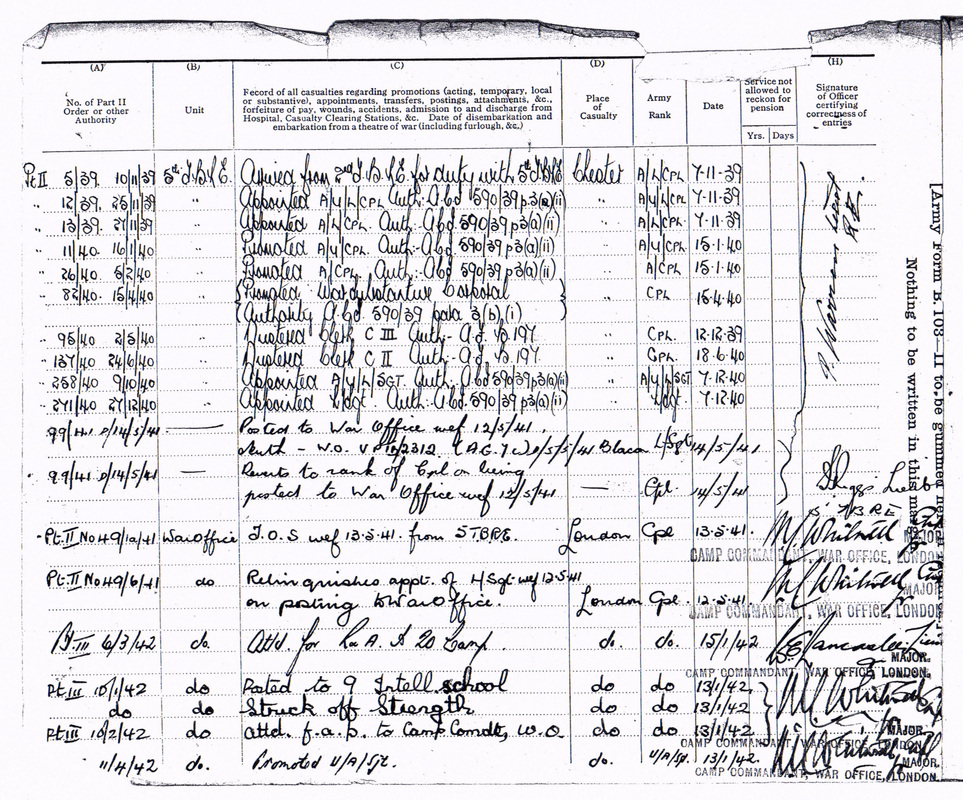 (A) (B) (C) (D) (H)
No. of Part II Order or other Authority
Unit
Record of all casualties regarding promotions (acting, temporary, local
or substantive), appointments, transfers, postings, attachments, &c.,
forfeiture of pay, wounds, accidents, admission to and discharge from
Hospital, Casualty Clearing Stations, &c. Date of disembarkation and
embarkation from a theatre of war (including furlough, &c.)
Place of Casualty
Army Rank
Date
Service not allowed to reckon for pension
Yrs. Days
Signature of Officer certifying correctness of entries
Pt II 5/39. 10/11/39 5th T.B.R.E. Arrived from 2nd T.B.R.E. for duty with 5th T.B.R.E Chester A/L/CPL 7-11-39
" 12/39. 25/11/39 " Appointed A/U/L/CPL Auth:- A.b.d 590/39 p3(a)(ii) " A/U/L/CPL 7-11-39
" 13/39. 27/11/39 " Appointed A/L/CPL. Auth. A.b.d 590/39 p3(a)(ii) " A/L/CPL 7-11-39
" 11/40. 16/1/40 " Promoted A/U/CPL. Auth:- A.b.d 590/39 p3(a)(ii) " A/U/CPL 15.1.40
" 26/40 5/2/40 " Promoted A/CPL. Auth:- A.b.d 590/39 p3(a)(ii) " A/CPL 15.1.40
" 82/40. 15/4/40 " Promoted War Substantive Corporal " CPL 15.4.40
Authority A.b.d. 590/39 para 3(b)(i)
" 95/40 2/5/40 " Mustered Clerk C III Auth:- A.f. B.197 " CPL. 12.12.39
" 137/40 24/6/40 " Mustered Clerk C II Auth:- A.f. B.197 " CPL. 18.6.40
" 258/40 9/10/40 " Appointed A/U/L/SGT. Auth:- A.b.d 590/39 p3(a)(ii) " A/U/L/SGT 7.12.40
" 271/40 27/12/40 " Appointed L/Sgt. Auth:- A.b.d. 590/39 p3(a)(ii) " L/Sgt. 7.12.40
99/41 d/14/5/41 — Posted to War Office wef 12/5/41.
Auth - W.O. (A.G.7 w) d/5/5/41 L/Sgt 14/5/41
99/41 d/14/5/41 — Reverts to rank of Cpl on being
posted to War Office wef 12/5/41 — Cpl. 14/5/41
Pt. II No 49/10/41 War Office T.O.S wef 13.5.41. from 5 T.B.R.E. London Cpl 13.5.41. MAJOR
CAMP COMMANDANT, WAR OFFICE, LONDON
Pt. II No 49/6/41 do Relinquishes appt. of L/Sgt wef 12.5.41
on posting to War Office. London Cpl 12.5.41 MAJOR
CAMP COMMANDANT, WAR OFFICE, LONDON
Pt. III 6/3/42 do. Attd. for R.A. A 20 Camp. do. do. 15/1/42
MAJOR.
CAMP COMMANDANT, WAR OFFICE, LONDON.
Pt. III 10/1/42 do Posted to 9 Intell. school do do 13/1/42
do do Struck off Strength do do 13/1/42
Pt III 10/2/42 do attd. f.a.p. to Camp Comdt, W.O do do 13/1/42 MAJOR.
CAMP COMMANDANT, WAR OFFICE, LONDON
11/4/42 do. Promoted U/A/Sgt. do. U/A/Sgt. 13/1/42. MAJOR.
CAMP COMMANDANT, WAR OFFICE, LONDON.
Nothing to be written in this
[Army Form B 103—II to be gummed